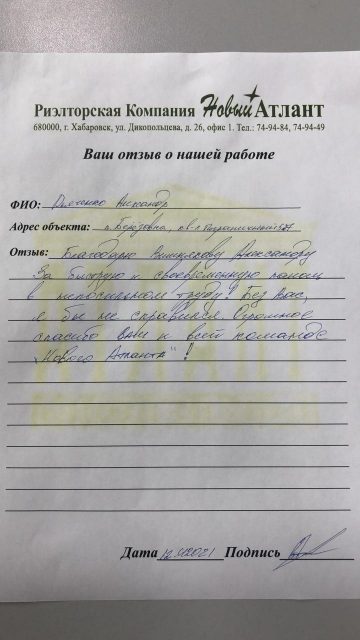 Риэлторская Компания Новый Атлант
680000, г. Хабаровск, ул. Дикопольцева, д. 26, офис 1. Тел.: 74-94-84, 74-94-49
Ваш отзыв о нашей работе
ФИО:
Адрес объекта: п. Берёзовка, кв-л
Отзыв: Благодарю Александру
За быструю и своевременную помощь
в непосильном труде! Без Вас,
я бы не справился. Огромное
спасибо Вам и всей команде
„Нового Атланта"!
Дата Подпись